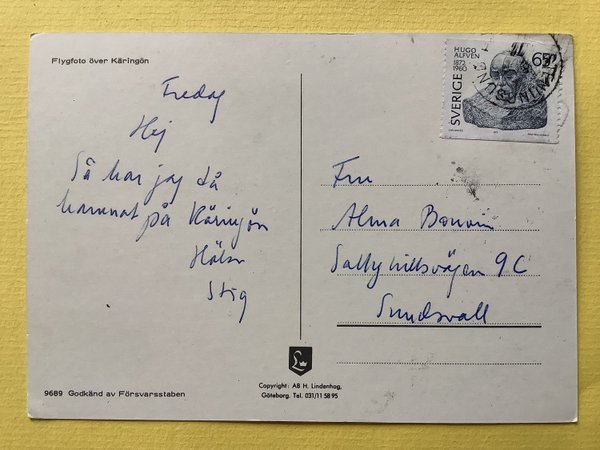 Flygfoto över Käringön
HUGO
ALFVÉN
1872
1960
65
SVERIGE
Fredag
Hej
Så har jag då
hamnat på Käringön
Hälsn
Stig
Fru
Alma
Sallyhillsvägen 9C
Sundsvall
9689 Godkänd av Försvarsstaben
Copyright: AB H. Lindenhag,
Göteborg. Tel. 031/11 58 95